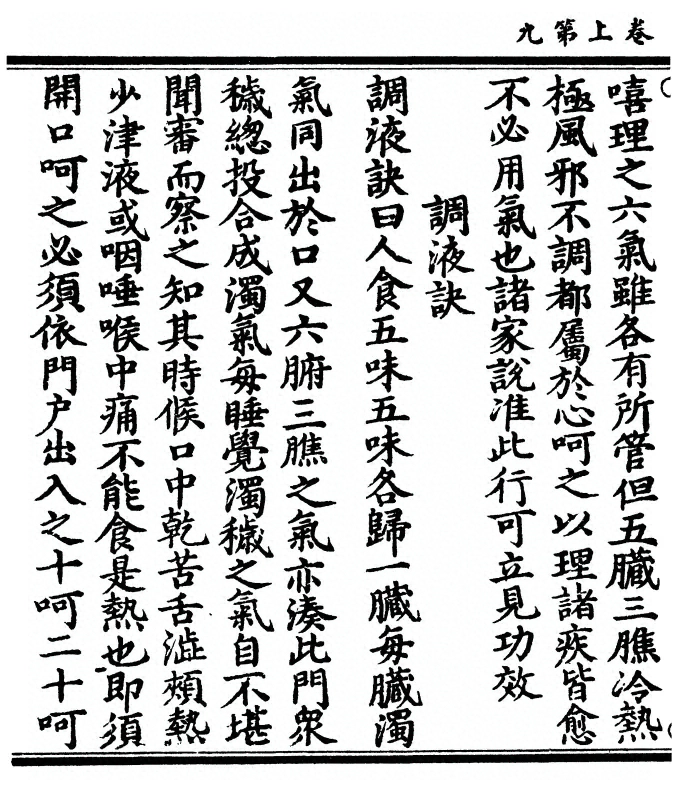 卷上第九
嘻理之六氣雖各有所管但五臟三膲冷熱
極風邪不調都屬於心呵之以理諸疾皆愈
不必用氣也諸家說准此行可立見功效
調液訣
調液訣曰人食五味五味各歸一臟每臟濁
氣同出於口又六腑三膲之氣亦湊此門衆
穢總投合成濁氣每睡覺濁穢之氣自不堪
聞審而察之知其時候口中乾苦舌澁頰熱
少津液或咽唾喉中痛不能食是熱也即須
開口呵之必須依門户出入之十呵二十呵